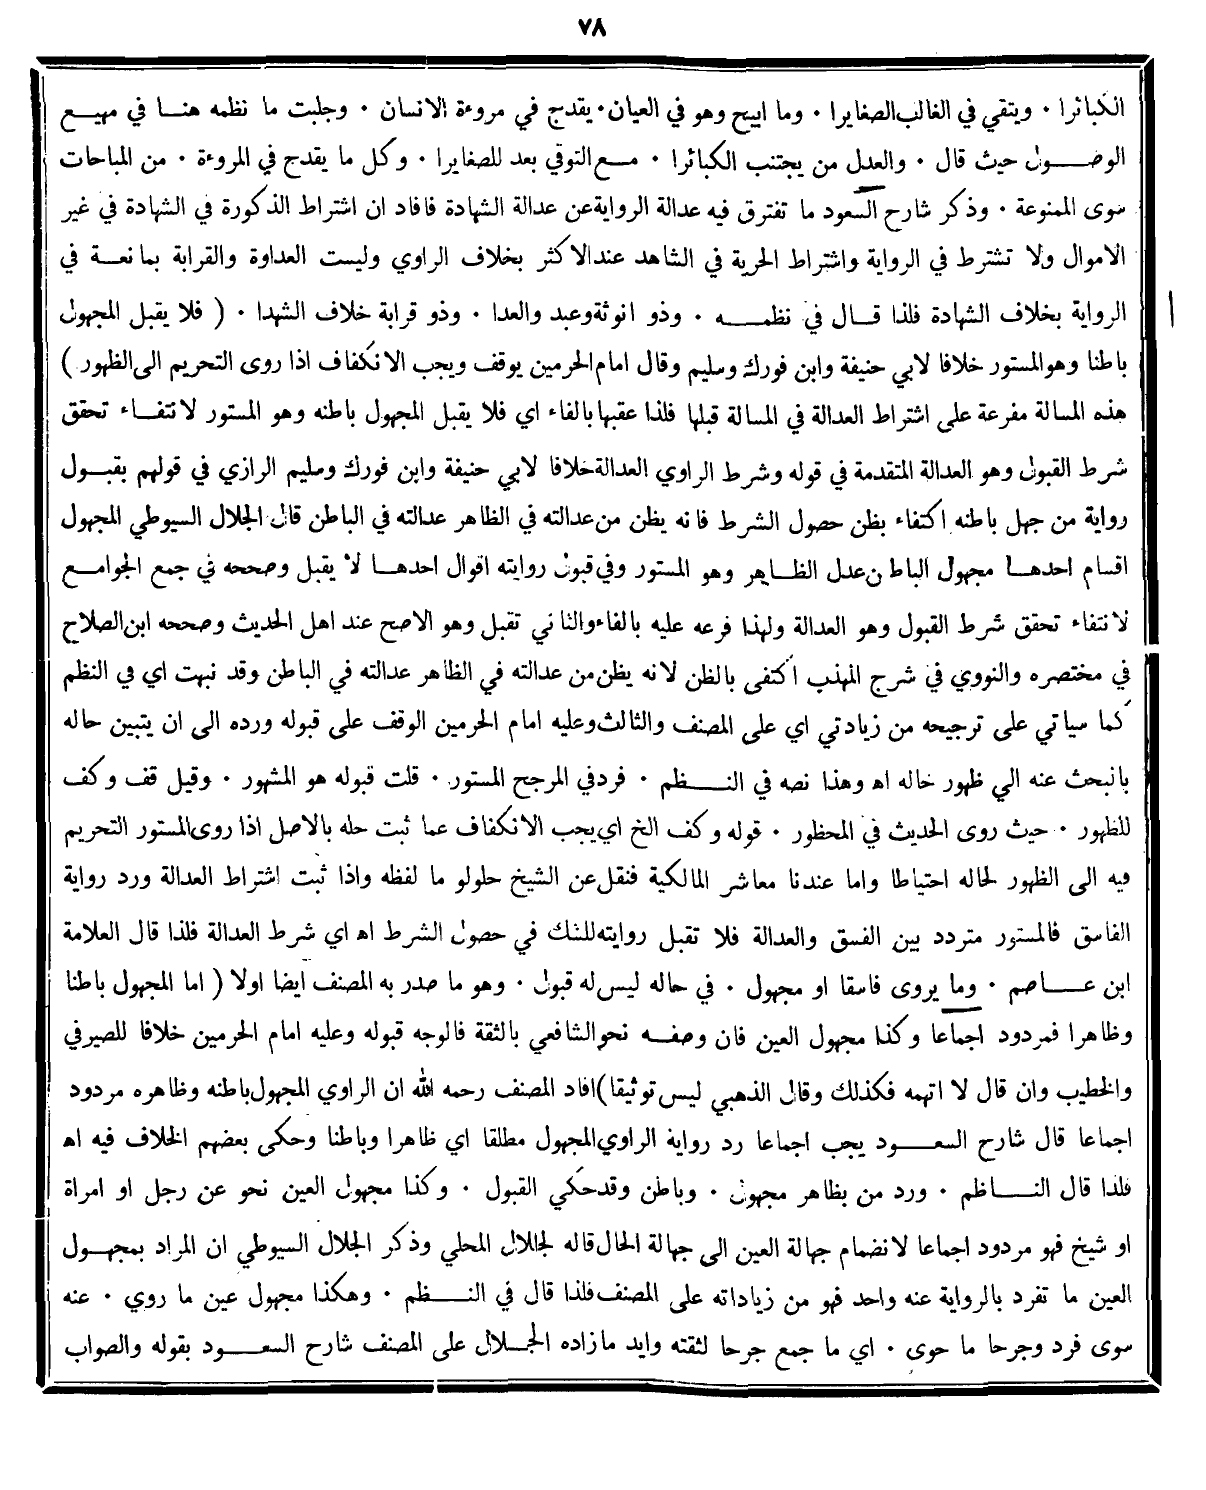 ٧٨
الكبائرا ٠ ويتقي في الغالب الصغايرا ٠ وما ابيح وهو في العيان ٠ يقدح في مروءة الانسان ٠ وجلبت ما نظمه هنا في مهيع
الوصول حيث قال ٠ والعدل من يجتنب الكبائرا ٠ مع التوقي بعد للصغايرا ٠ وكل ما يقدح في المروءة ٠ من المباحات
سوى الممنوعة ٠ وذكر شارح السعود ما تفترق فيه عدالة الرواية عن عدالة الشهادة فافاد ان اشتراط الذكورة في الشهادة في غير
الاموال ولا تشترط في الرواية واشتراط الحرية في الشاهد عند الاكثر بخلاف الراوي وليست العداوة والقرابة بمانعة في
الرواية بخلاف الشهادة فلذا قال في نظمه ٠ وذو انوثة وعبد والعدا ٠ وذو قرابة خلاف الشهدا ٠ ( فلا يقبل المجهول
باطنا وهو المستور خلافا لابي حنيفة وابن فورك وسليم وقال امام الحرمين يوقف ويجب الانكفاف اذا روى التحريم الى الظهور )
هذه المسالة مفرعة على اشتراط العدالة في المسالة قبلها فلذا عقبها بالفاء اي فلا يقبل المجهول باطنه وهو المستور لانتفاء تحقق
شرط القبول وهو العدالة المتقدمة في قوله وشرط الراوي العدالة خلافا لابي حنيفة وابن فورك وسليم الرازي في قولهم بقبول
رواية من جهل باطنه اكتفاء بظن حصول الشرط فانه يظن من عدالته في الظاهر عدالته في الباطن قال الجلال السيوطي المجهول
اقسام احدها مجهول الباطن عدل الظاهر وهو المستور وفي قبول روايته اقوال احدها لا يقبل وصححه في جمع الجوامع
لانتفاء تحقق شرط القبول وهو العدالة ولهذا فرعه عليه بالفاء والثاني تقبل وهو الاصح عند اهل الحديث وصححه ابن الصلاح
في مختصره والنووي في شرح المهذب اكتفى بالظن لانه يظن من عدالته في الظاهر عدالته في الباطن وقد نبهت اي في النظم
كما سياتي على ترجيحه من زيادتي اي على المصنف والثالث وعليه امام الحرمين الوقف على قبوله ورده الى ان يتبين حاله
بالبحث عنه الي ظهور حاله اه وهذا نصه في النظم ٠ فرد في المرجح المستور ٠ قلت قبوله هو المشهور ٠ وقيل قف وكف
للظهور ٠ حيث روى الحديث في المحظور ٠ قوله وكف الخ اي يجب الانكفاف عما ثبت حله بالاصل اذا روى المستور التحريم
فيه الى الظهور لحاله احتياطا واما عندنا معاشر المالكية فنقل عن الشيخ حلولو ما لفظه واذا ثبت اشتراط العدالة ورد رواية
الفاسق فالمستور متردد بين الفسق والعدالة فلا تقبل روايته للشك في حصول الشرط اه اي شرط العدالة فلذا قال العلامة
ابن عاصم ٠ وما يروى فاسقا او مجهول ٠ في حاله ليس له قبول ٠ وهو ما صدر به المصنف ايضا اولا ( اما المجهول باطنا
وظاهرا فمردود اجماعا وكذا مجهول العين فان وصفه نحو الشافعي بالثقة فالوجه قبوله وعليه امام الحرمين خلافا للصيرفي
والخطيب وان قال لا اتهمه فكذلك وقال الذهبي ليس توثيقا ) افاد المصنف رحمه الله ان الراوي المجهول باطنه وظاهره مردود
اجماعا قال شارح السعود يجب اجماعا رد رواية الراوي المجهول مطلقا اي ظاهرا وباطنا وحكى بعضهم الخلاف فيه اه
فلذا قال الناظم ٠ ورد من بظاهر مجهول ٠ وباطن وقد حكي القبول ٠ وكذا مجهول العين نحو عن رجل او امراة
او شيخ فهو مردود اجماعا لانضمام جهالة العين الى جهالة الحال قاله لجالال المحلي وذكر الجلال السيوطي ان المراد بمجهول
العين ما تفرد بالرواية عنه واحد فهو من زياداته على المصنف فلذا قال في النظم ٠ وهكذا مجهول عين ما روي ٠ عنه
سوى فرد وجرحا ما حوى ٠ اي ما جمع جرحا لثقته وايد ما زاده الجلال على المصنف شارح السعود بقوله والصواب